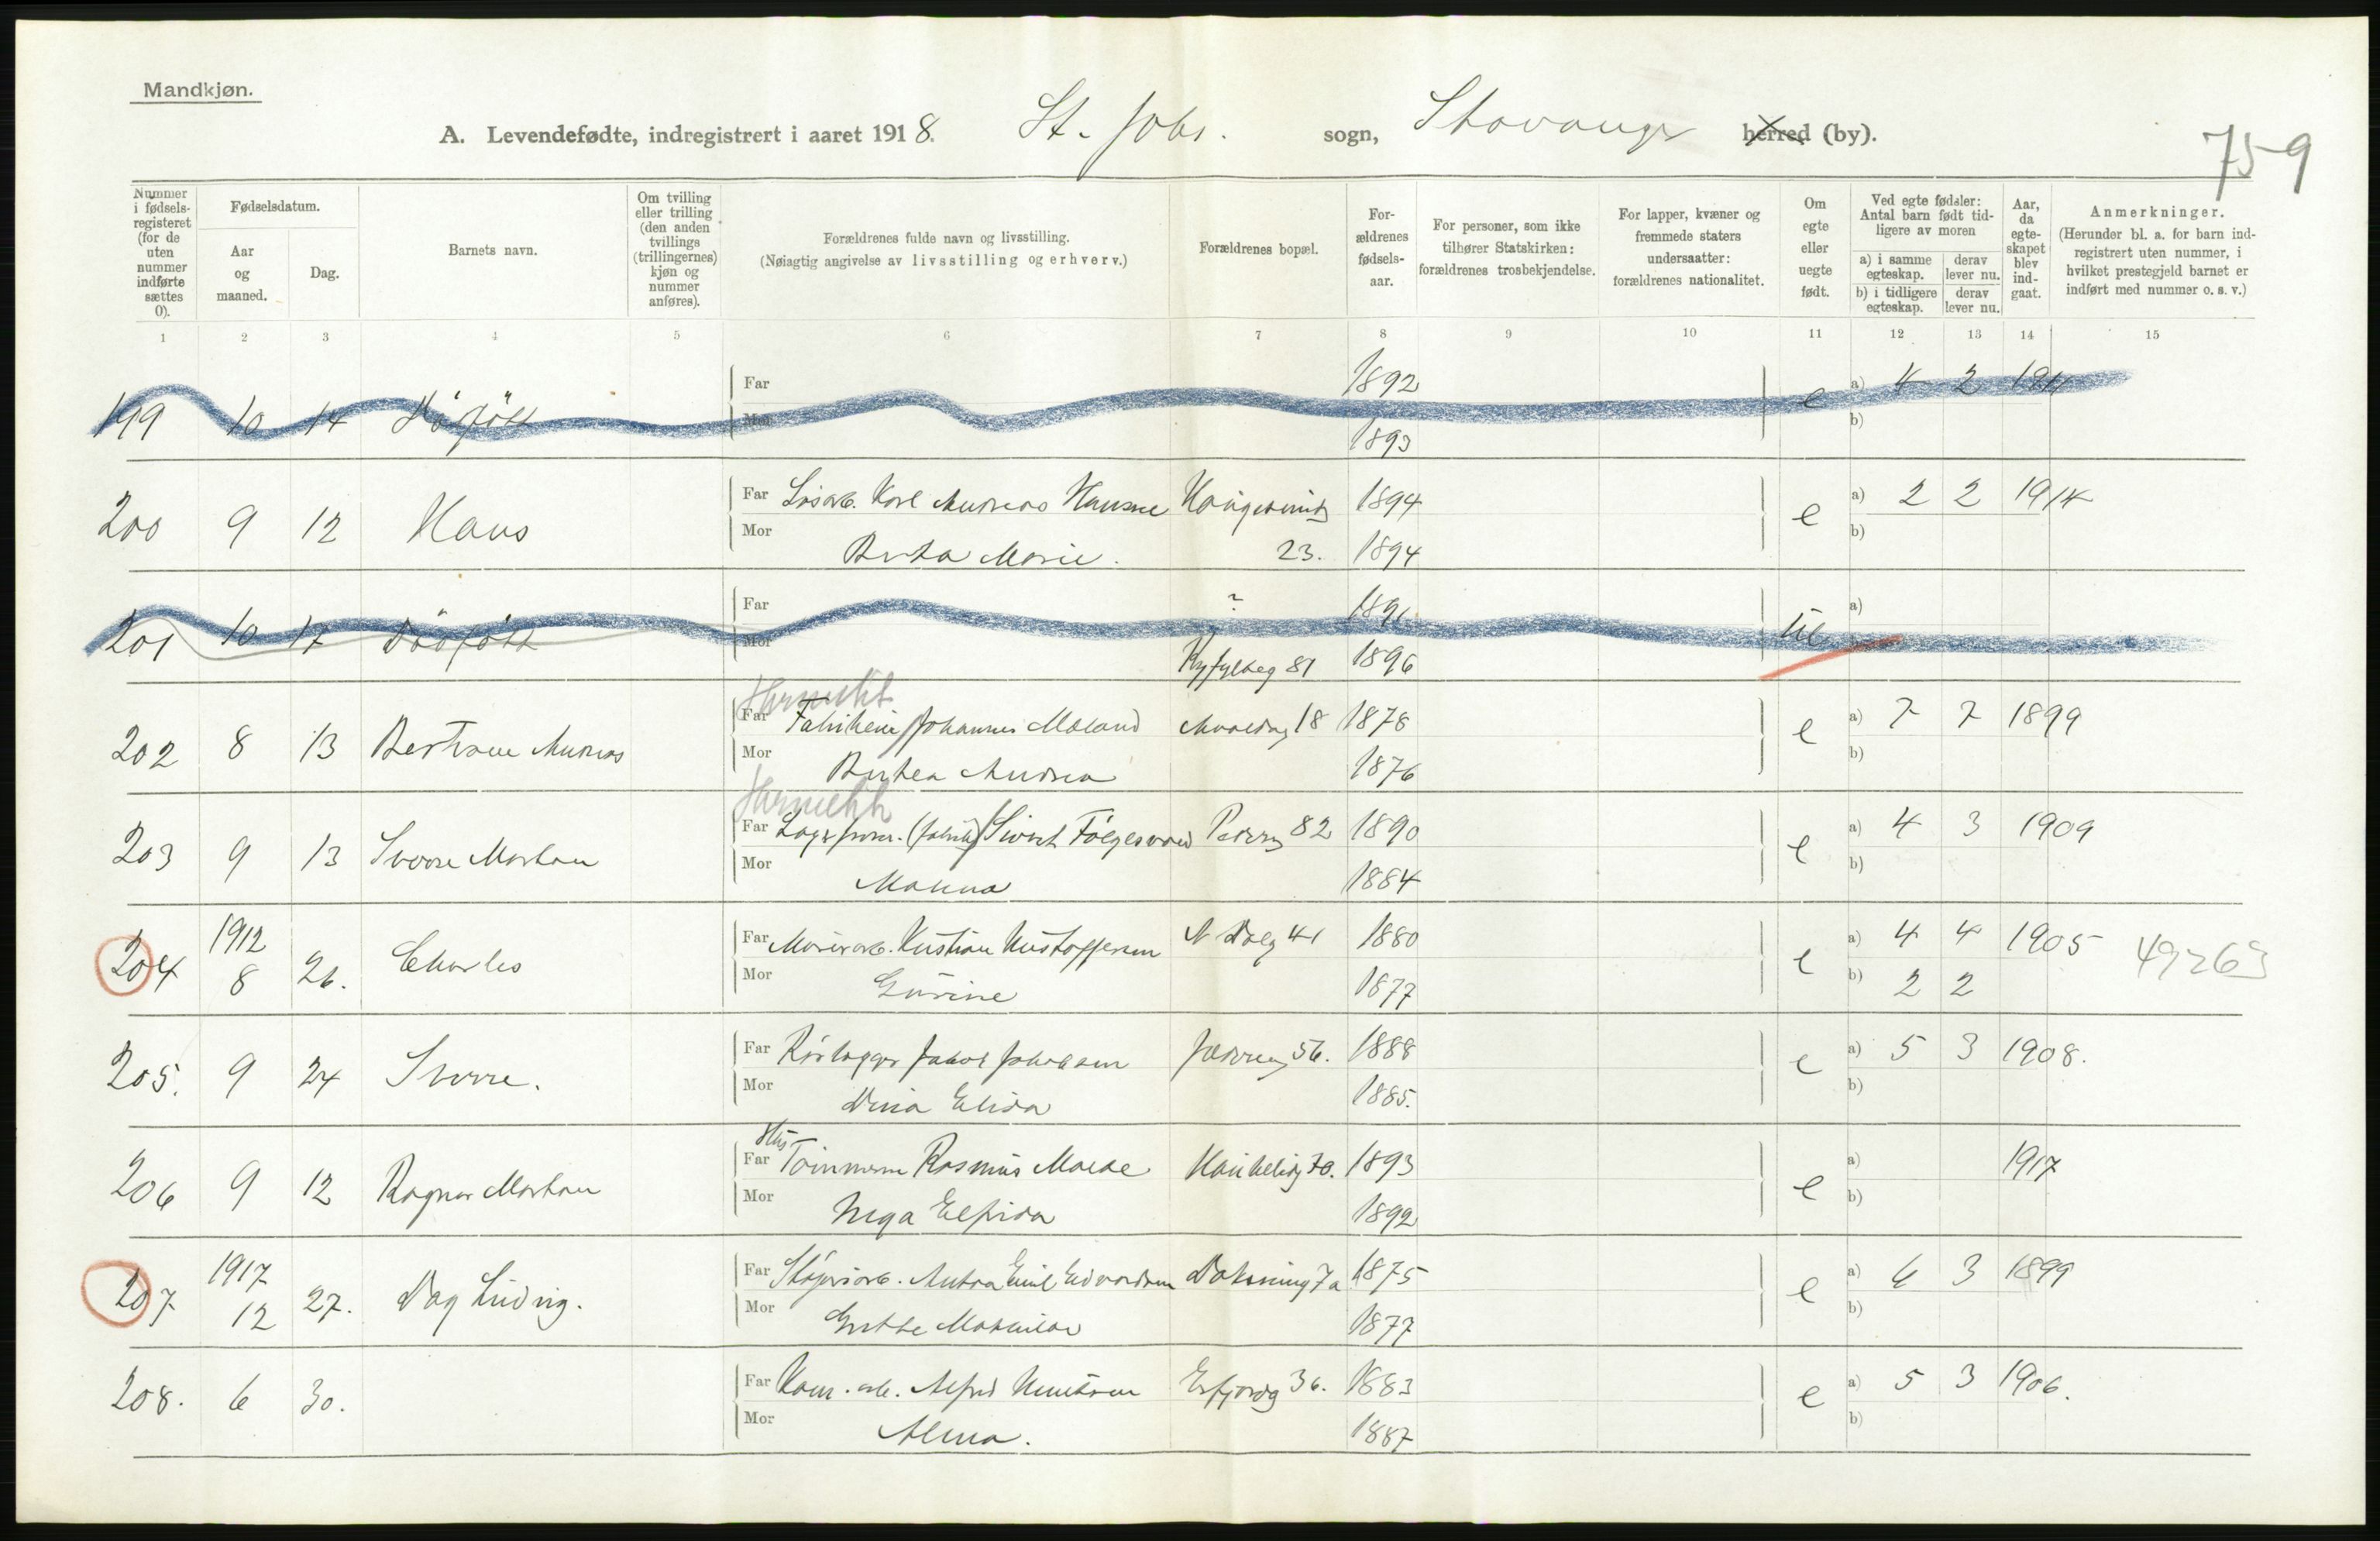 Mandkjøn.
A. Levendefødte, indregistrert i aaret 1918. St. Johs. sogn, Stavanger herred (by).
759
Nummer i fødsels-registeret (for de uten nummer indførte sættes 0).
Fødselsdatum.
Aar og maaned.
Dag.
Barnets navn.
Om tvilling eller trilling (den anden tvillings (trillingernes) kjøn og nummer anføres).
Forældrenes fulde navn og livsstilling.
(Nøiagtig angivelse av livsstilling og erhverv.)
Forældrenes bopæl.
For-ældrenes fødsels-aar.
For personer, som ikke tilhører Statskirken: forældrenes trosbekjendelse.
For lapper, kvæner og fremmede staters undersaatter: forældrenes nationalitet.
Om egte eller uegte født.
Ved egte fødsler: Antal barn født tid-ligere av moren
a) i samme egteskap. derav lever nu.
b) i tidligere egteskap. derav lever nu.
Aar, da egte-skapet blev ind-gaat.
Anmerkninger.
(Herunder bl. a. for barn ind-registrert uten nummer, i hvilket prestegjeld barnet er indført med nummer o. s. v.)
1 2 3 4 5 6 7 8 9 10 11 12 13 14 15
Far 1892 a) 4 2 1911
199 10 14 Dödfödt e
Mor 1893 b)
Far Karl Andreas Hansen 1894 a) 2 2 1914
200 9 12 Hans e
Mor Berta Marie. 23. 1894 b)
Far ? 1891 a)
201 10 17 Dödfödt
Mor Ryfylkeg 81 1896
Far Johannes Maland 18 1878 a) 7 7 1899
202 8 13 Andreas e
Mor Berthea Andrea 1876 b)
Far Sivert Pedersg 82 1890 a) 4 3 1909
203 9 13 Sverre Morten e
Mor Malena 1884 b)
1912
Far Kristian Kristoffersen 41 1880 a) 4 4 1905 49263
204 8 26. Charles e
Mor Gurine 1877 b) 2 2
Far Rörlægger Jakob Jakobsen Jæderveg 56. 1888 a) 5 3 1908.
205. 9 24 Sverre. e
Mor Dina Elida 1885. b)
Hus
Far Tömmerm Rasmus 1893 a) 1917
206 9 12 Ragnar Morten e
Mor Inga Elfrida 1892 b)
1917
Far Anton Emil Edvardsen 7a 1875 a) 6 3 1899
207 12 27. Dag Ludvig. e
Mor Grethe Mathilde 1877 b)
Far Kom. arb. Alfred Knutsen Erfjordg 36. 1883 a) 5 3 1906.
208. 6 30. e
Mor Alma. 1887 b)